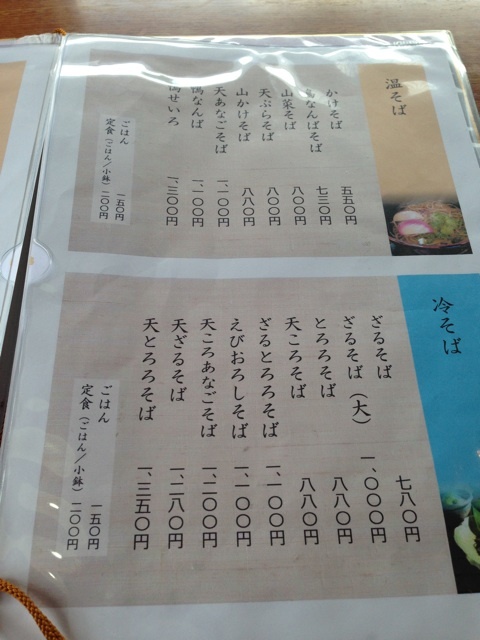 温そば
かけそば 五五〇円
鳥なんばそば 七三〇円
山菜そば 八〇〇円
天ぷらそば 八〇〇円
山かけそば 八八〇円
天あなごそば 一、一〇〇円
鴨なんば 一、一〇〇円
鴨せいろ 一、三〇〇円
ごはん 一五〇円
定食(ごはん/小鉢) 二〇〇円
冷そば
ざるそば 七八〇円
ざるそば(大) 一、〇〇〇円
とろろそば 八八〇円
天ころそば 八八〇円
ざるとろろそば 一、一〇〇円
えびおろしそば 一、一〇〇円
天ころあなごそば 一、二〇〇円
天ざるそば 一、二八〇円
天とろろそば 一、三五〇円
ごはん 一五〇円
定食(ごはん/小鉢) 二〇〇円